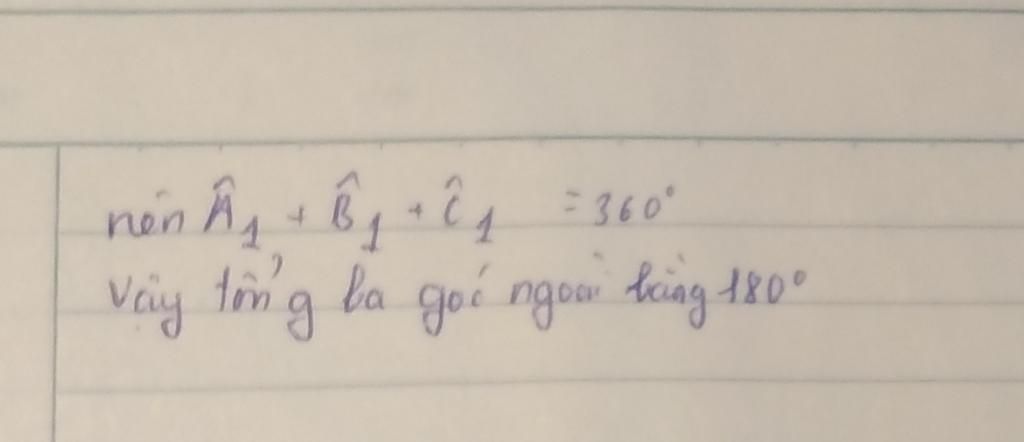 nên Â₁ + B̂₁ + Ĉ₁ = 360°
Vậy tổng ba goć ngoài bằng 180°